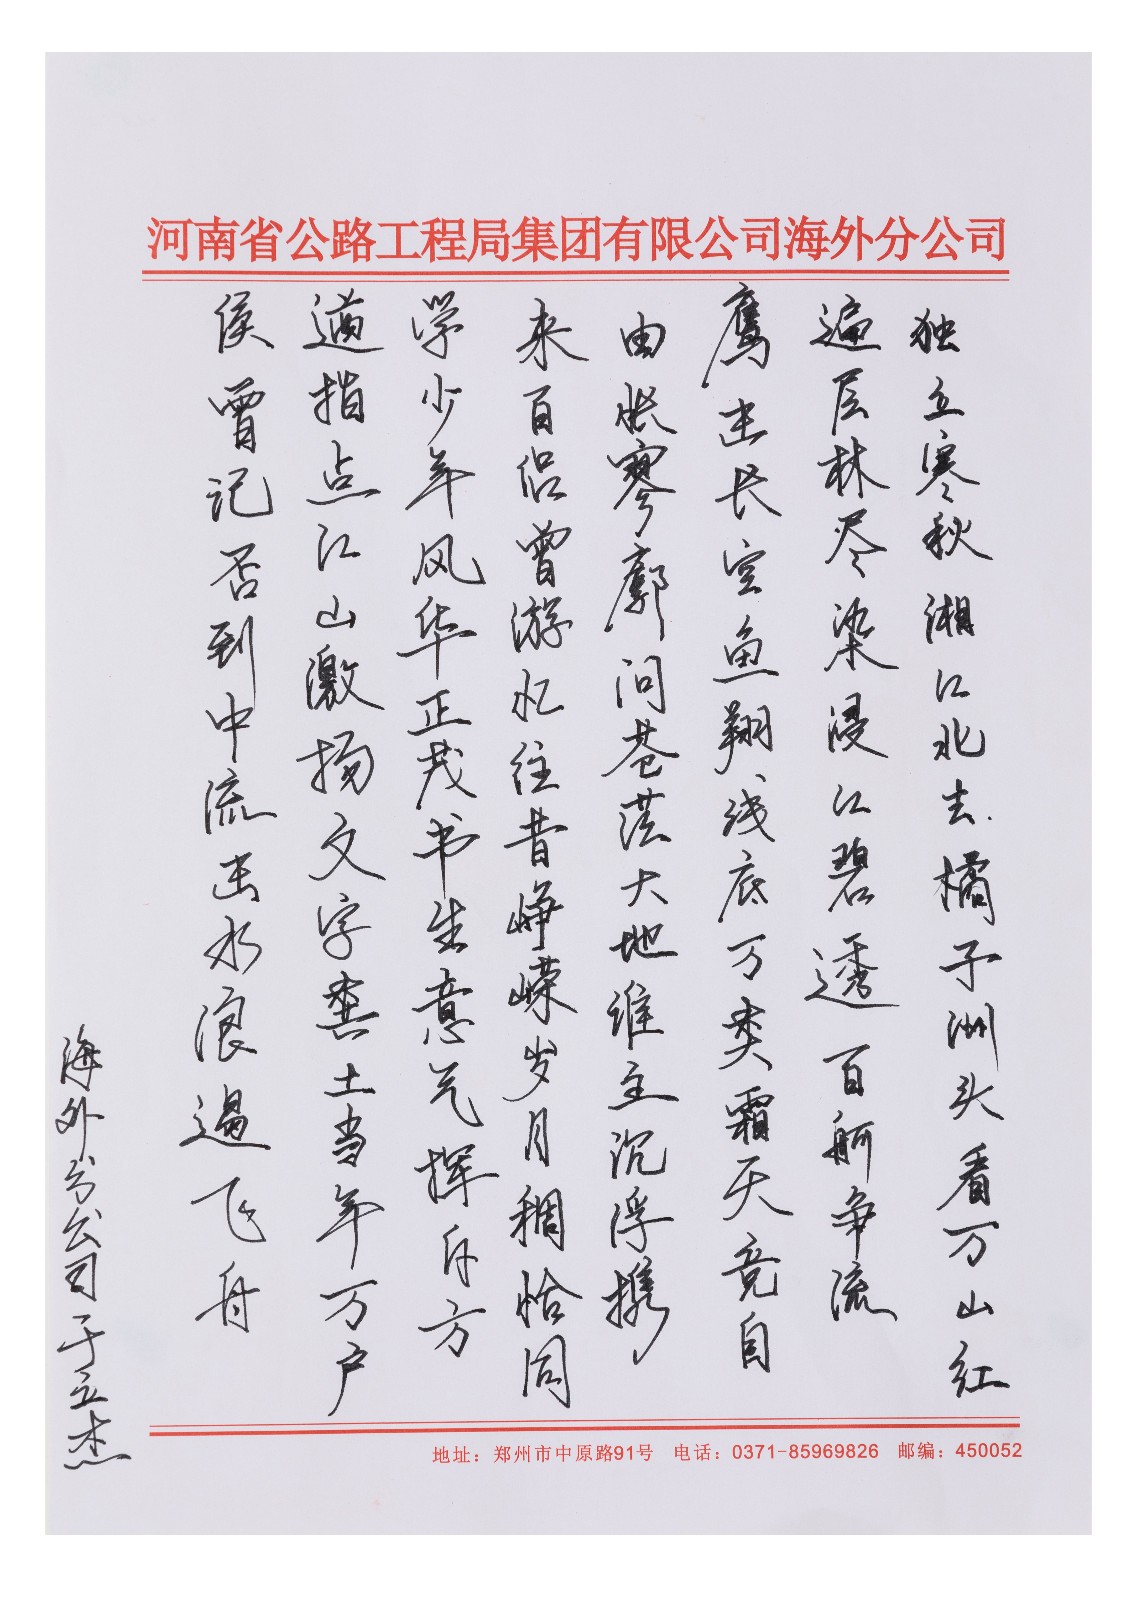 河南省公路工程局集团有限公司海外分公司
独立寒秋湘江北去.橘子洲头看万山红
遍层林尽染漫江碧透百舸争流
鹰击长空鱼翔浅底万类霜天竞自
由怅寥廓问苍茫大地谁主沉浮携
来百侣曾游忆往昔峥嵘岁月稠恰同
学少年风华正茂书生意气挥斥方
遒指点江山激扬文字粪土当年万户
侯曾记否到中流击水浪遏飞舟
海外分公司于立杰
地址：郑州市中原路91号 电话：0371-85969826 邮编：450052